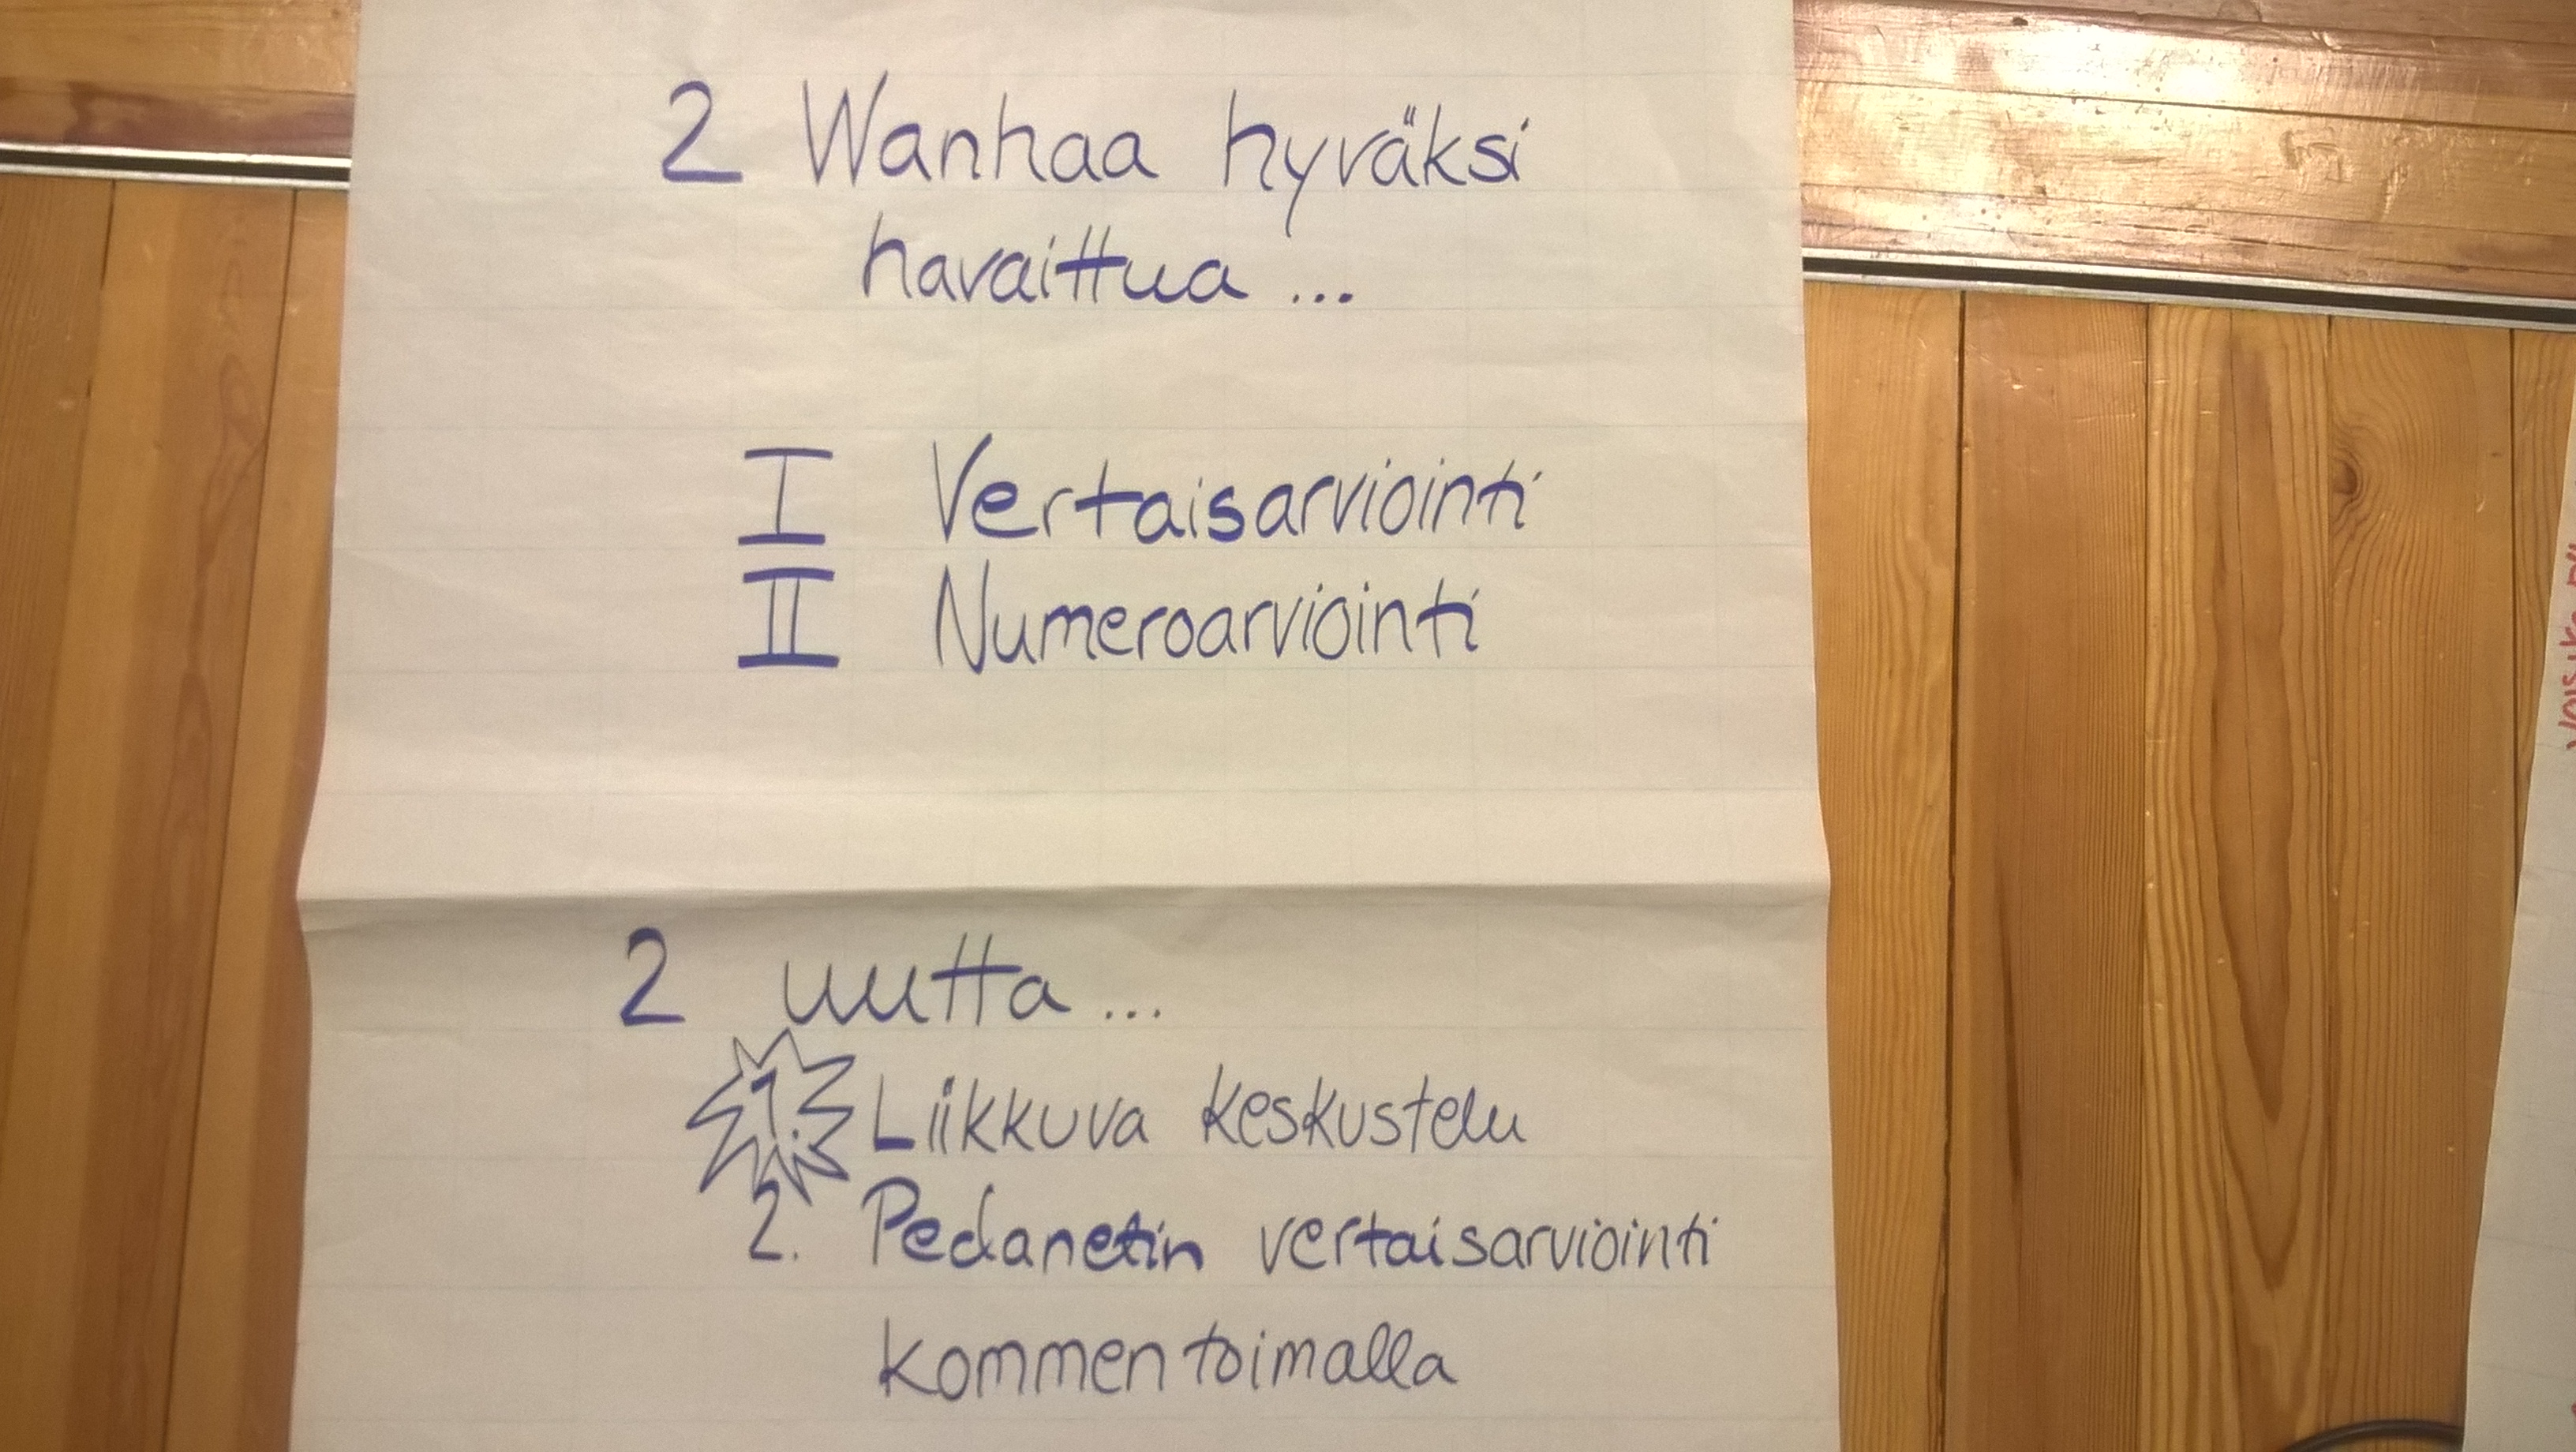 2 Wanhaa hyväksi
havaittua ...
I Vertaisarviointi
II Numeroarviointi
2 uutta ...
1. Liikkuva keskustelu
2. Pedanetin vertaisarviointi
kommentoimalla